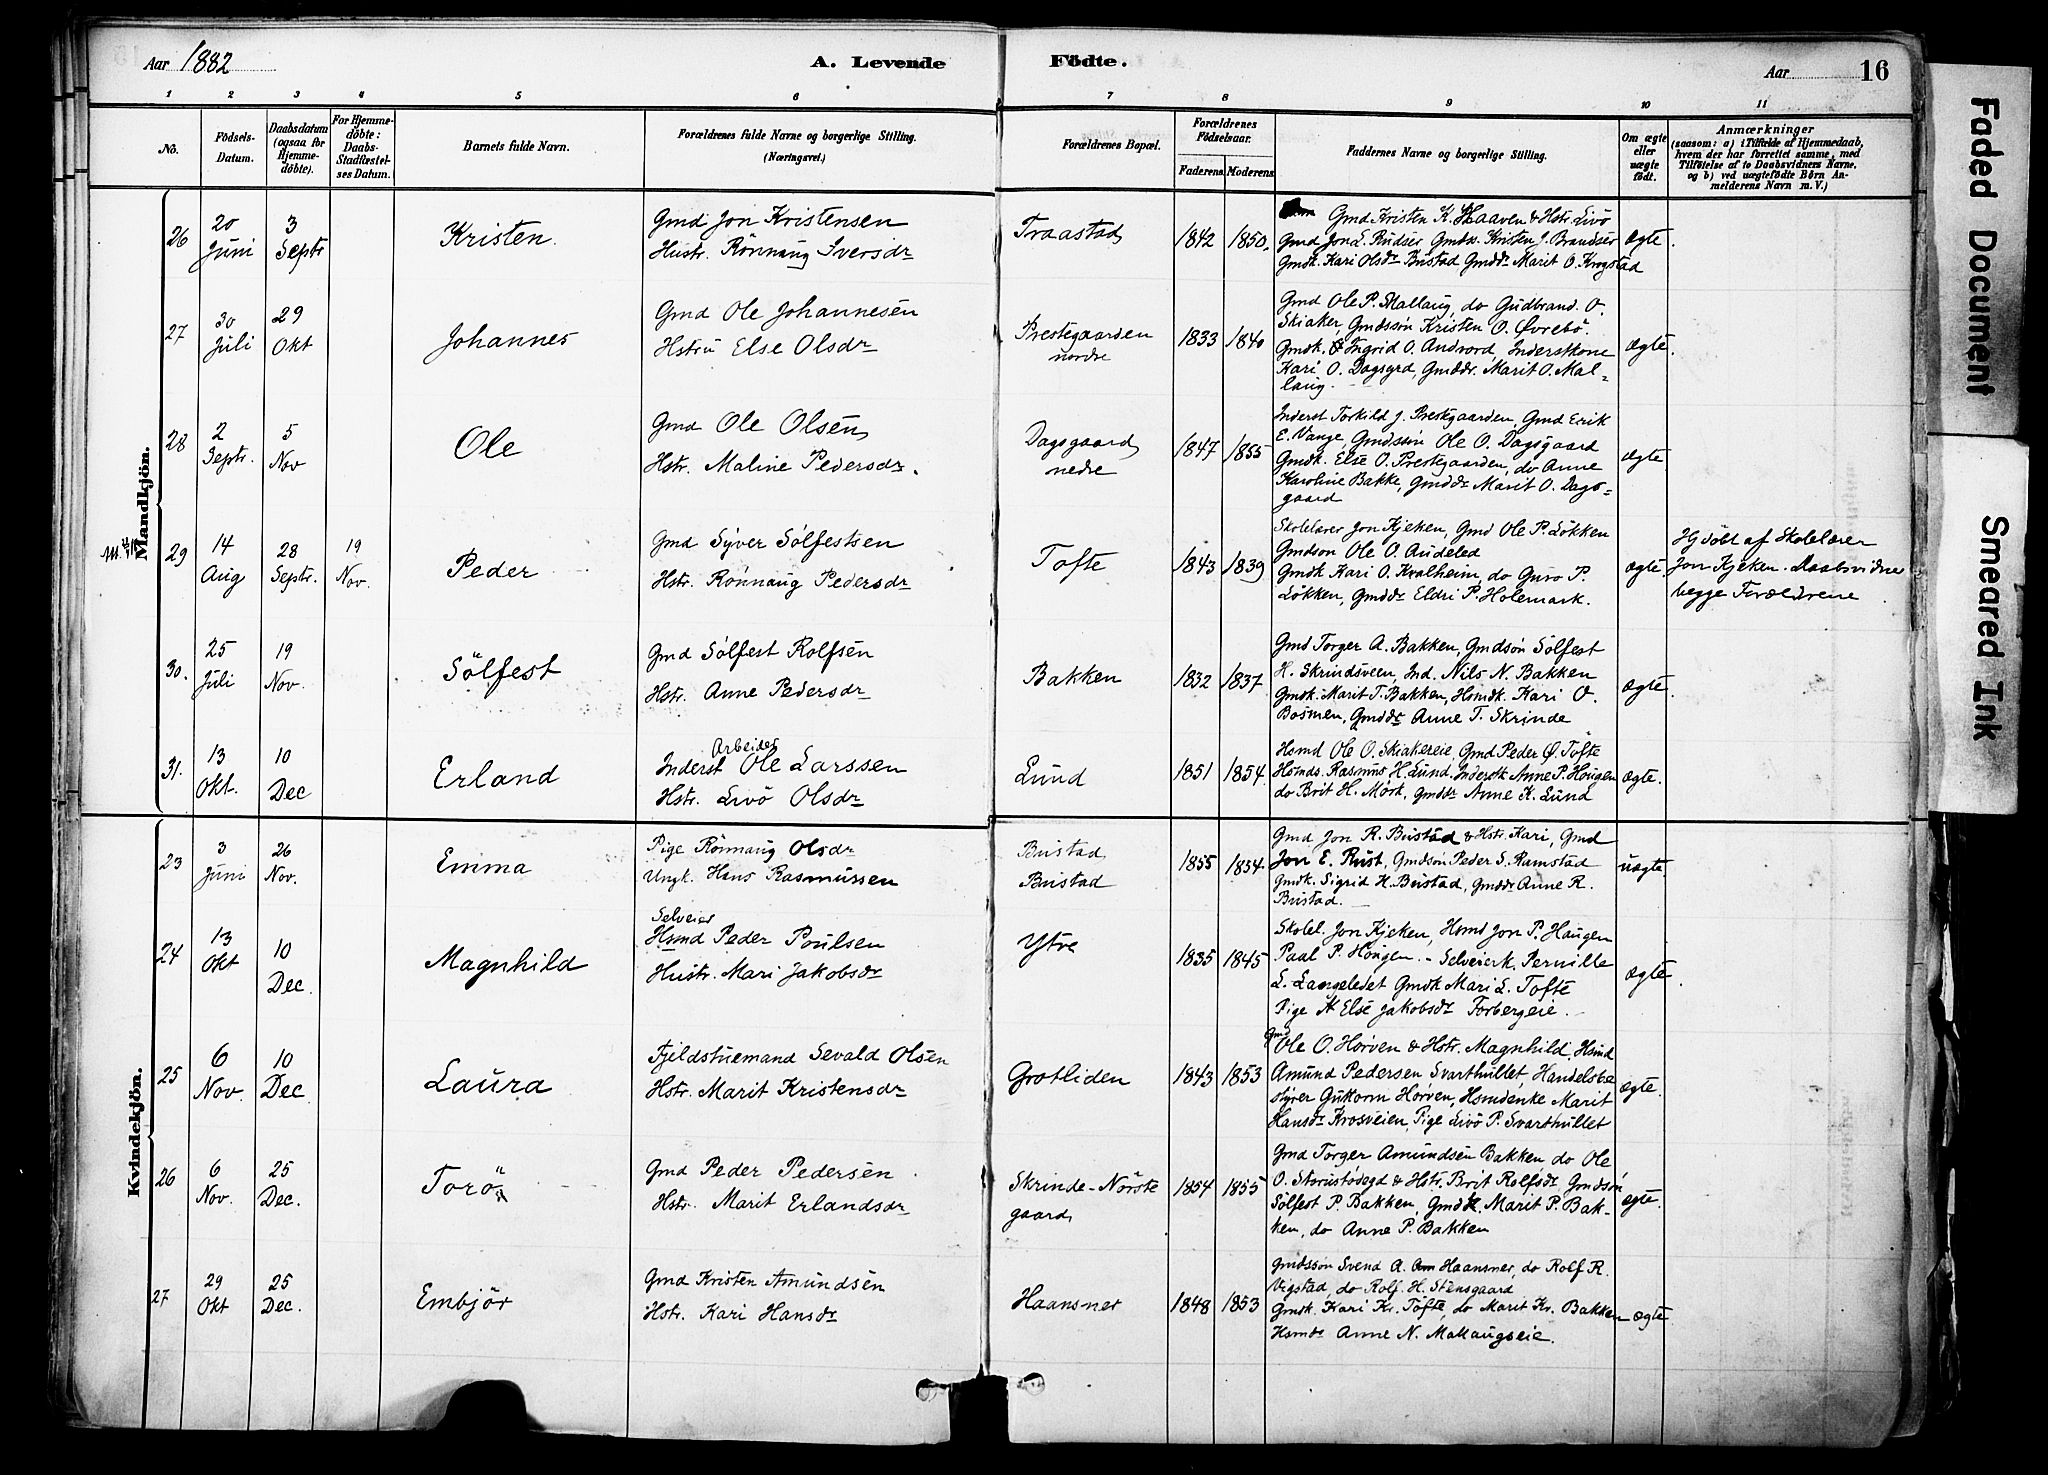 Aar 1882
A. Levende Födte.
Aar 16
1 2 3 4 5 6 7 8 9 10 11
No.
Födsels-Datum.
Daabsdatum (ogsaa for Hjemme-döbte).
For Hjemme-döbte: Daabs-Stadfæstel-ses Datum.
Barnets fulde Navn.
Forældrenes fulde Navne og borgerlige Stilling.
(Næringsvei.)
Forældrenes Bopæl.
Forældrenes Födselsaar.
Faderens. Moderens.
Faddernes Navne og borgerlige Stilling.
Om ægte eller uægte födt.
Anmærkninger
(saasom: a) i Tilfælde af Hjemmedaab, hvem der har forrettet samme, med Tilföielse af to Daabsvidners Navne, og b) ved uægtefödte Börn An-melderens Navn m. V.)
Mandkjön.
26 20 Juni 3 Septr Kristen. Gmd Jon Kristensen
Hustr. Rönnaug Iversdr
Traastad 1842 1850.
Gmd Kristen K. Skaaven & Hstr. Livö
Gmd Jon L. Rudser Gmdss. Kristen J. Brandser
Gmdk. Kari Olsdr Bustad Gmddr Marit O. Krogstad
Ægte.
27 30 Juli 29 Okt Johannes Gmd Ole Johannesen
Hstru Else Olsdr
Prestegaarden nordre 1833 1840
Gmd Ole P. Mallaug, do Gudbrand O.
Skiaker, Gmdssön Kristen O. Øvrebö.
Gmdk. Ingrid O. Andvord, Inderstkone
Kari O. Dagsgrd, Gmddr. Marit O. Mal=
laug.
ægte.
28 2 Septr. 5 Nov Ole Gmd Ole Olsen
Hstr. Maline Pedersdr.
Dagsgaard nedre 1847 1855
Inderst Torkild J. Prestegaarden, Gmd Erik
E. Vange, Gmdssön Ole O. Dagsgaard
Gmdk. Else O. Prestegaarden, do Anne
Karoline Bakke, Gmddr Marit O. Dags=
gaard
ægte
29 14 Aug 28 Septr. 19 Nov. Peder Gmd Syver Sölfestsen
Hstr. Rönnaug Pedersdr
Tofte 1843 1839
Skolelærer Jon Kjeken, Gmd Ole P. Lökken
Gmdson Ole O. Andeled
Gmdk Kari O. Kvalheim, do Guro P.
Lökken, Gmddr Eldri P. Holemark.
ægte.
Hjdöbt af Skolelærer
Jon Kjeken. Daabsvidner
begge Forældrene
30. 25 Juli 19 Nov. Sölfest Gmd Sölfest Rolfsen
Hstr. Anne Pedersdr
Bakken 1832 1837
Gmd Torger A. Bakken, Gmdsön Sölfest
H. Skrindsveen, Ind. Nils N. Bakken
Gmdk. Marit T. Bakken, Hsmdk. Kari O.
Bosmen, Gmddr Anne T. Skrinde
ægte.
31. 13 Okt. 10 Dec Erland Arbeider
Inderst Ole Larssen
Hstr. Livö Olsdr
Lund 1851 1854.
Hsmd Ole O. Skiakereie, Gmd Peder Ø. Tofte
Hsmds. Rasmus H. Lund. Inderstk Anne P. Hougen
do Brit H. Mork, Gmddr Anne K. Lund
ægte.
Kvindekjön.
23 3 Juni 26 Nov. Emma Pige Rönnaug Olsdr
Ungk. Hans Rasmussen
Bustad
Bustad
1855 1854.
Gmd Jon R. Bustad & Hstr. Kari, Gmd
Jon E. Rust, Gmdsön Peder S. Ramstad
Gmdk. Sigrid H. Bustad, Gmddr Anne R.
Bustad.
uægte
24 13 Okt 10 Dec. Magnhild Selveier
Hsmd Peder Poulsen
Hustr. Mari Jakobsdr
Ytre 1835 1845
Skolel. Jon Kjeken, Hsmd Jon P. Haugen
Paal P. Hougen. - Selveierk. Pernille
L. Langeledet Gmdk Mari L. Tofte
Pige Else Jakobsdr Forbergeie.
ægte.
25 6 Nov. 10 Dec. Laura Fjeldstuemand Sevald Olsen
Hstr. Marit Kristensdr
Grotliden 1843 1853
Gmd
Ole O. Horven & Hstr. Magnhild, Hsmd
Amund Pedersen Svarthullet, Handelsbe
styrer Guttorm Horven, Hsmdenke Marit
Hansdr Krosveien, Pige Livö P. Svarthullet
ægte.
26 6 Nov. 25 Dec. Torö Gmd Peder Pedersen
Hstr. Marit Erlandsdr
Skrinde-Nörste
gaard
1854 1855
Gmd Torger Amundsen Bakken do Ole
O. Storustödegd & Hstr. Brit Rolfsdr Gmdsön
Sölfest P. Bakken, Gmdk. Marit P. Bak-
ken, do Anne P. Bakken
ægte.
27 29 Okt 25 Dec. Embjör Gmd Kristen Amundsen
Hstr. Kari Hansdr
Haansner 1848 1853
Gmdssön Svend A. Haansner, do Rolf R.
Vigstad, do Rolf H. Stensgaard
Gmdk. Kari Kr. Tofte, do Marit Kr. Bakken
Hsmdr Anne N. Mallaugseie.
ægte
Faded Document
Smeared Ink